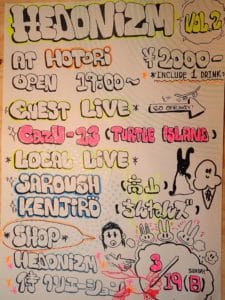 HEDONiZM VOL.2
AT HOTORi ¥2000-
OPEN 19:00~ *INCLUDE 1 DRINK
*GUEST LiVE*
CAzU-23 (TURTLE ISLAND)
*LOCAL LiVE*
SAROUSH (高山)
KENJIRO
*SHOP*
HEDONiZM 3
侍クリエーション 19(日)
SUNDAY